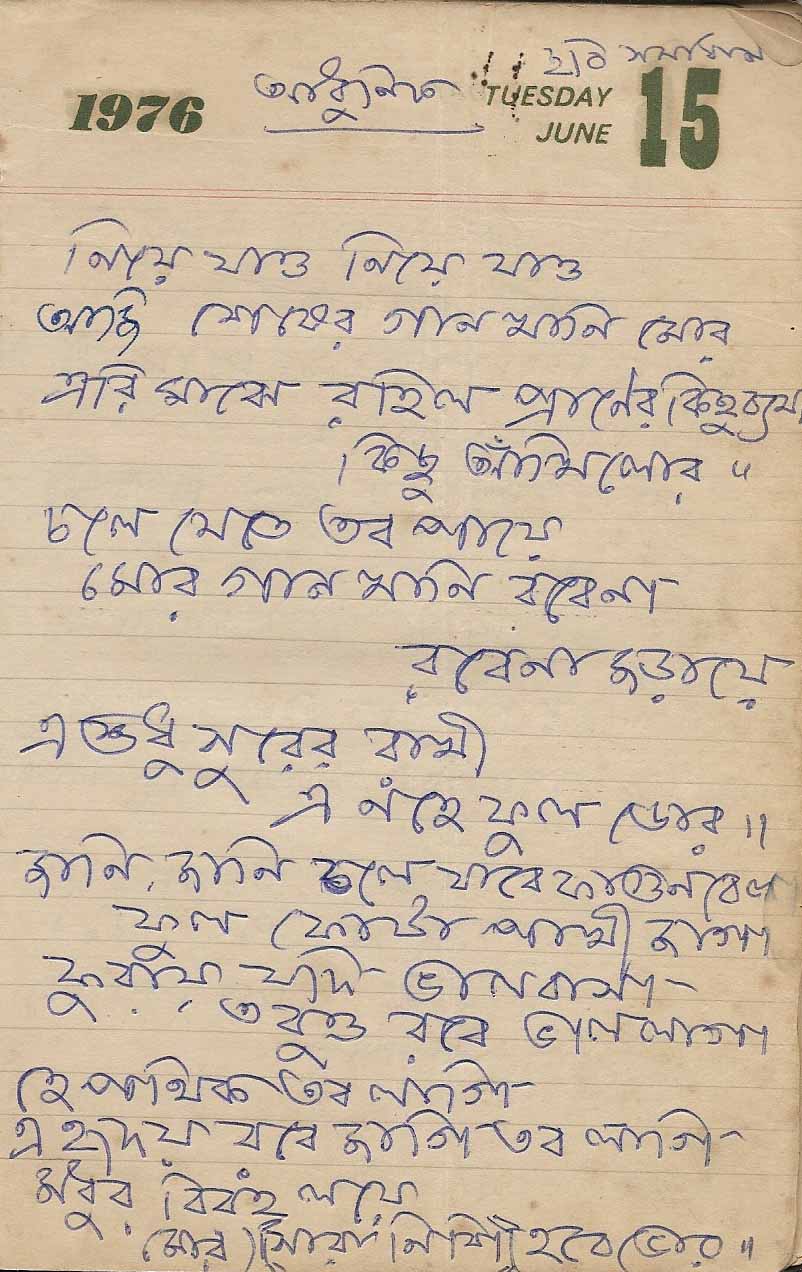 ছবি
1976 আধুনিক TUESDAY 15
JUNE
নিয়ে যাও নিয়ে যাও
আজি শেষের গান খানি মোর
এরি মাঝে রহিল প্রাণের কিছু ব্যথা
কিছু আঁখিলোর ॥
চলে যেতে তব পায়ে
মোর গান খানি রবেনা
রবেনা জড়ায়ে
এ শুধু সুরের রাখী
এ নহে ফুল ডোর ॥
জানি, জানি চলে যাবে ফাগুন বেলা
ফুল ফোটা পাখী জাগা
ফুরায় যদি ভালবাসা
তবুও রবে ভাল লাগা
হে পথিক তব লাগি
এ হৃদয় রবে জাগি তব লাগি
মধুর বিরহ লয়ে
মোর সারা নিশি হবে ভোর ॥